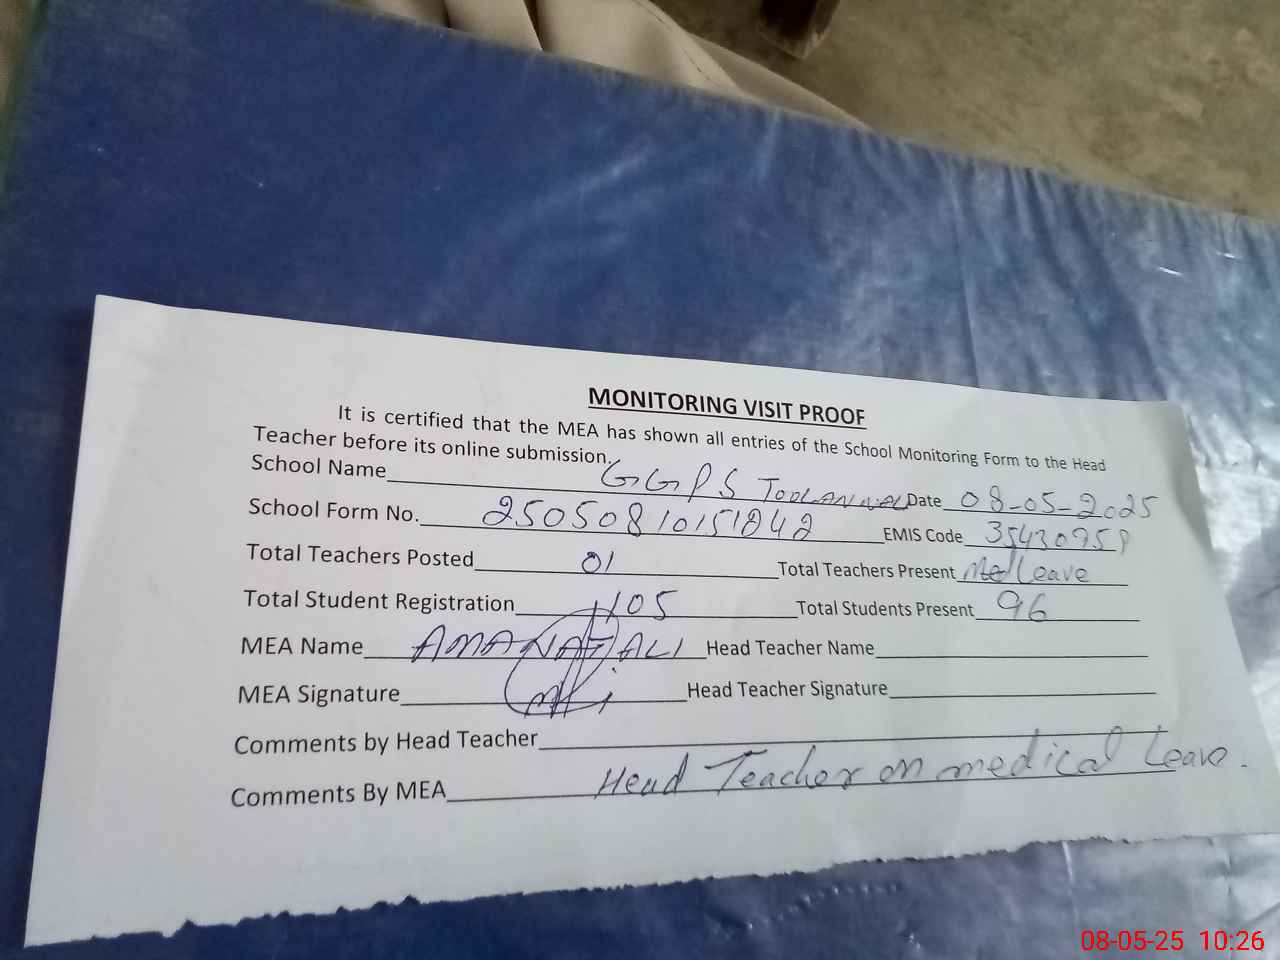 MONITORING VISIT PROOF
It is certified that the MEA has shown all entries of the School Monitoring Form to the Head
Teacher before its online submission.
School Name GGPS Date 08-05-2025
School Form No. EMIS Code 35430758
Total Teachers Posted 01 Total Teachers Present Med Leave
Total Student Registration 105 Total Students Present 96
MEA Name AMANAT ALI Head Teacher Name
MEA Signature Head Teacher Signature
Comments by Head Teacher
Comments By MEA Head Teacher on medical Leave.
08-05-25 10:26